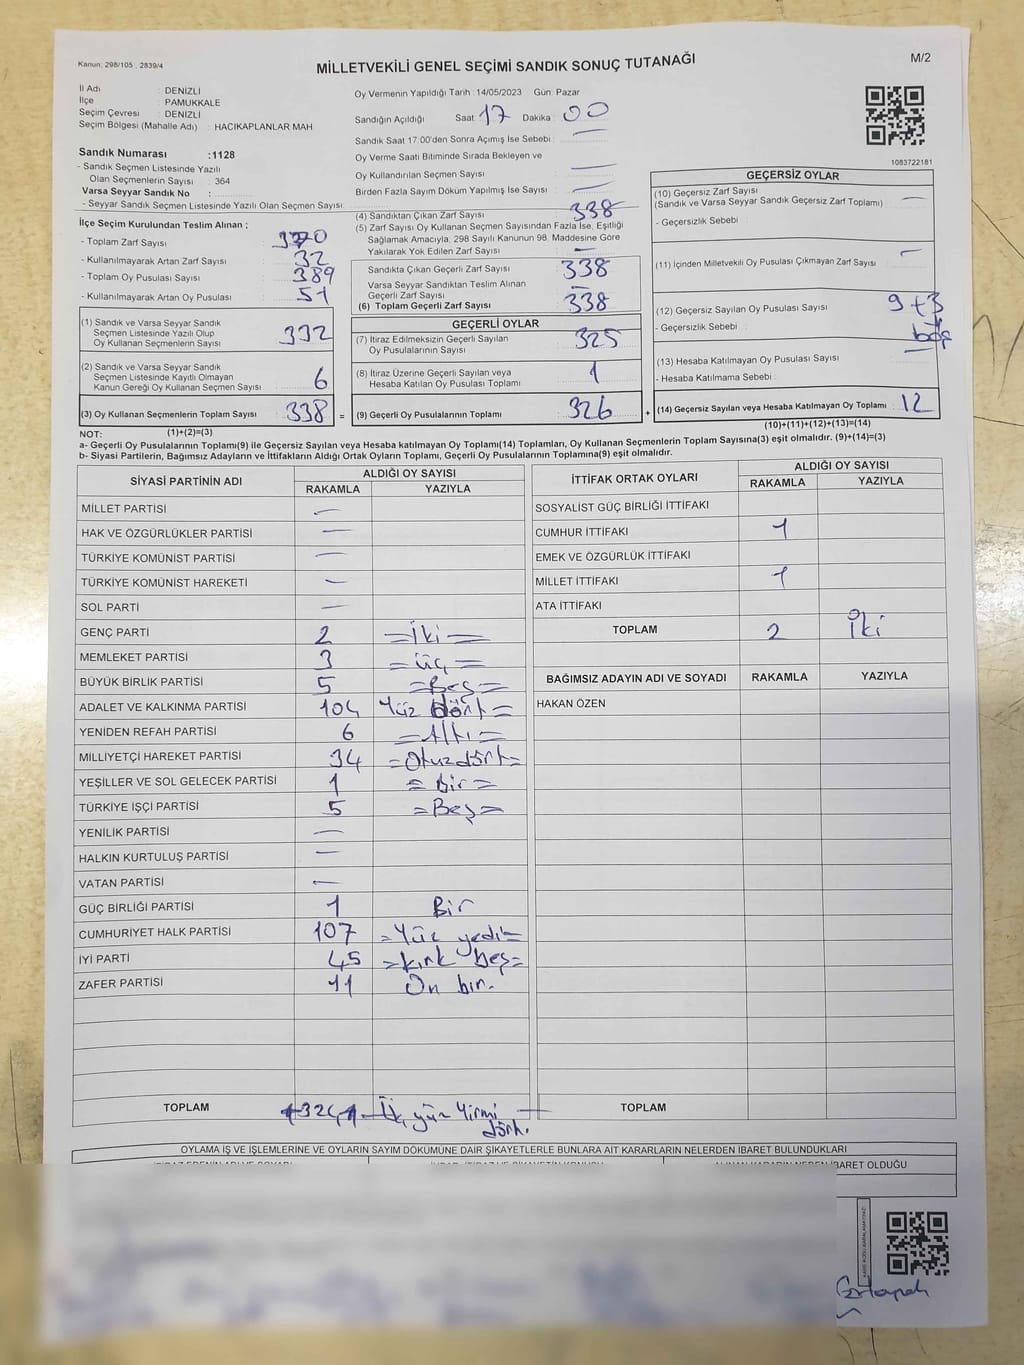 Kanun: 298/105 , 2839/4
MİLLETVEKİLİ GENEL SEÇİMİ SANDIK SONUÇ TUTANAĞI
M/2
İl Adı : DENİZLİ
İlçe : PAMUKKALE
Seçim Çevresi : DENİZLİ
Seçim Bölgesi (Mahalle Adı) : HACIKAPLANLAR MAH
Sandık Numarası :1128
- Sandık Seçmen Listesinde Yazılı
Olan Seçmenlerin Sayısı : 364
Varsa Seyyar Sandık No :
- Seyyar Sandık Seçmen Listesinde Yazılı Olan Seçmen Sayısı:
Oy Vermenin Yapıldığı Tarih : 14/05/2023 Gün: Pazar
Sandığın Açıldığı Saat : 17 Dakika : 00
Sandık Saat 17:00'den Sonra Açımış İse Sebebi : —
Oy Verme Saati Bitiminde Sırada Bekleyen ve
Oy Kullandırılan Seçmen Sayısı : —
Birden Fazla Sayım Döküm Yapılmış İse Sayısı : —
1083722181
İlçe Seçim Kurulundan Teslim Alınan ;
- Toplam Zarf Sayısı : 370
- Kullanılmayarak Artan Zarf Sayısı : 32
- Toplam Oy Pusulası Sayısı : 389
- Kullanılmayarak Artan Oy Pusulası : 51
(1) Sandık ve Varsa Seyyar Sandık
Seçmen Listesinde Yazılı Olup
Oy Kullanan Seçmenlerin Sayısı : 332
(2) Sandık ve Varsa Seyyar Sandık
Seçmen Listesinde Kayıtlı Olmayan
Kanun Gereği Oy Kullanan Seçmen Sayısı : 6
(3) Oy Kullanan Seçmenlerin Toplam Sayısı : 338 =
(1)+(2)=(3)
(4) Sandıktan Çıkan Zarf Sayısı : 338
(5) Zarf Sayısı Oy Kullanan Seçmen Sayısından Fazla İse, Eşitliği
Sağlamak Amacıyla, 298 Sayılı Kanunun 98. Maddesine Göre
Yakılarak Yok Edilen Zarf Sayısı : —
Sandıkta Çıkan Geçerli Zarf Sayısı : 338
Varsa Seyyar Sandıktan Teslim Alınan
Geçerli Zarf Sayısı : —
(6) Toplam Geçerli Zarf Sayısı : 338
GEÇERLİ OYLAR
(7) İtiraz Edilmeksizin Geçerli Sayılan
Oy Pusulalarının Sayısı : 325
(8) İtiraz Üzerine Geçerli Sayılan veya
Hesaba Katılan Oy Pusulası Toplamı : 1
(9) Geçerli Oy Pusulalarının Toplamı : 326 +
GEÇERSİZ OYLAR
(10) Geçersiz Zarf Sayısı : —
(Sandık ve Varsa Seyyar Sandık Geçersiz Zarf Toplamı)
- Geçersizlik Sebebi :
(11) İçinden Milletvekili Oy Pusulası Çıkmayan Zarf Sayısı : —
(12) Geçersiz Sayılan Oy Pusulası Sayısı : 9+3
- Geçersizlik Sebebi : boş
(13) Hesaba Katılmayan Oy Pusulası Sayısı : —
- Hesaba Katılmama Sebebi :
(14) Geçersiz Sayılan veya Hesaba Katılmayan Oy Toplamı : 12
(10)+(11)+(12)+(13)=(14)
NOT:
a- Geçerli Oy Pusulalarının Toplamı(9) ile Geçersiz Sayılan veya Hesaba katılmayan Oy Toplamı(14) Toplamları, Oy Kullanan Seçmenlerin Toplam Sayısına(3) eşit olmalıdır. (9)+(14)=(3)
b- Siyasi Partilerin, Bağımsız Adayların ve İttifakların Aldığı Ortak Oyların Toplamı, Geçerli Oy Pusulalarının Toplamına(9) eşit olmalıdır.
SİYASİ PARTİNİN ADI ALDIĞI OY SAYISI
RAKAMLA YAZIYLA
MİLLET PARTİSİ —
HAK VE ÖZGÜRLÜKLER PARTİSİ —
TÜRKİYE KOMÜNİST PARTİSİ —
TÜRKİYE KOMÜNİST HAREKETİ —
SOL PARTİ —
GENÇ PARTİ 2 =İki=
MEMLEKET PARTİSİ 3 =üç=
BÜYÜK BİRLİK PARTİSİ 5 =Beş=
ADALET VE KALKINMA PARTİSİ 104 Yüz dört=
YENİDEN REFAH PARTİSİ 6 =Altı=
MİLLİYETÇİ HAREKET PARTİSİ 34 =Otuzdört=
YEŞİLLER VE SOL GELECEK PARTİSİ 1 =bir=
TÜRKİYE İŞÇİ PARTİSİ 5 =Beş=
YENİLİK PARTİSİ —
HALKIN KURTULUŞ PARTİSİ —
VATAN PARTİSİ —
GÜÇ BİRLİĞİ PARTİSİ 1 Bir
CUMHURİYET HALK PARTİSİ 107 =Yüz yedi=
İYİ PARTİ 45 =kırk beş=
ZAFER PARTİSİ 11 On bir.
TOPLAM 324 Üç yüz Yirmi
dört.
İTTİFAK ORTAK OYLARI ALDIĞI OY SAYISI
RAKAMLA YAZIYLA
SOSYALİST GÜÇ BİRLİĞİ İTTİFAKI
CUMHUR İTTİFAKI 1
EMEK VE ÖZGÜRLÜK İTTİFAKI
MİLLET İTTİFAKI 1
ATA İTTİFAKI
TOPLAM 2 İki
BAĞIMSIZ ADAYIN ADI VE SOYADI RAKAMLA YAZIYLA
HAKAN ÖZEN
TOPLAM
OYLAMA İŞ VE İŞLEMLERİNE VE OYLARIN SAYIM DÖKÜMÜNE DAİR ŞİKAYETLERLE BUNLARA AİT KARARLARIN NELERDEN İBARET BULUNDUKLARI
İBARET OLDUĞU